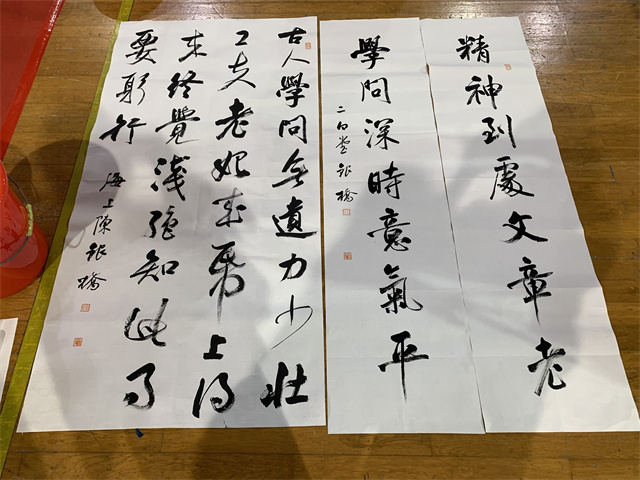 精神到處文章老
學問深時意氣平
二白堂銀橋
古人學問无遺力少壯
工夫老始成帋上得
来終覺淺絕知此事
要躬行
海上陳銀橋